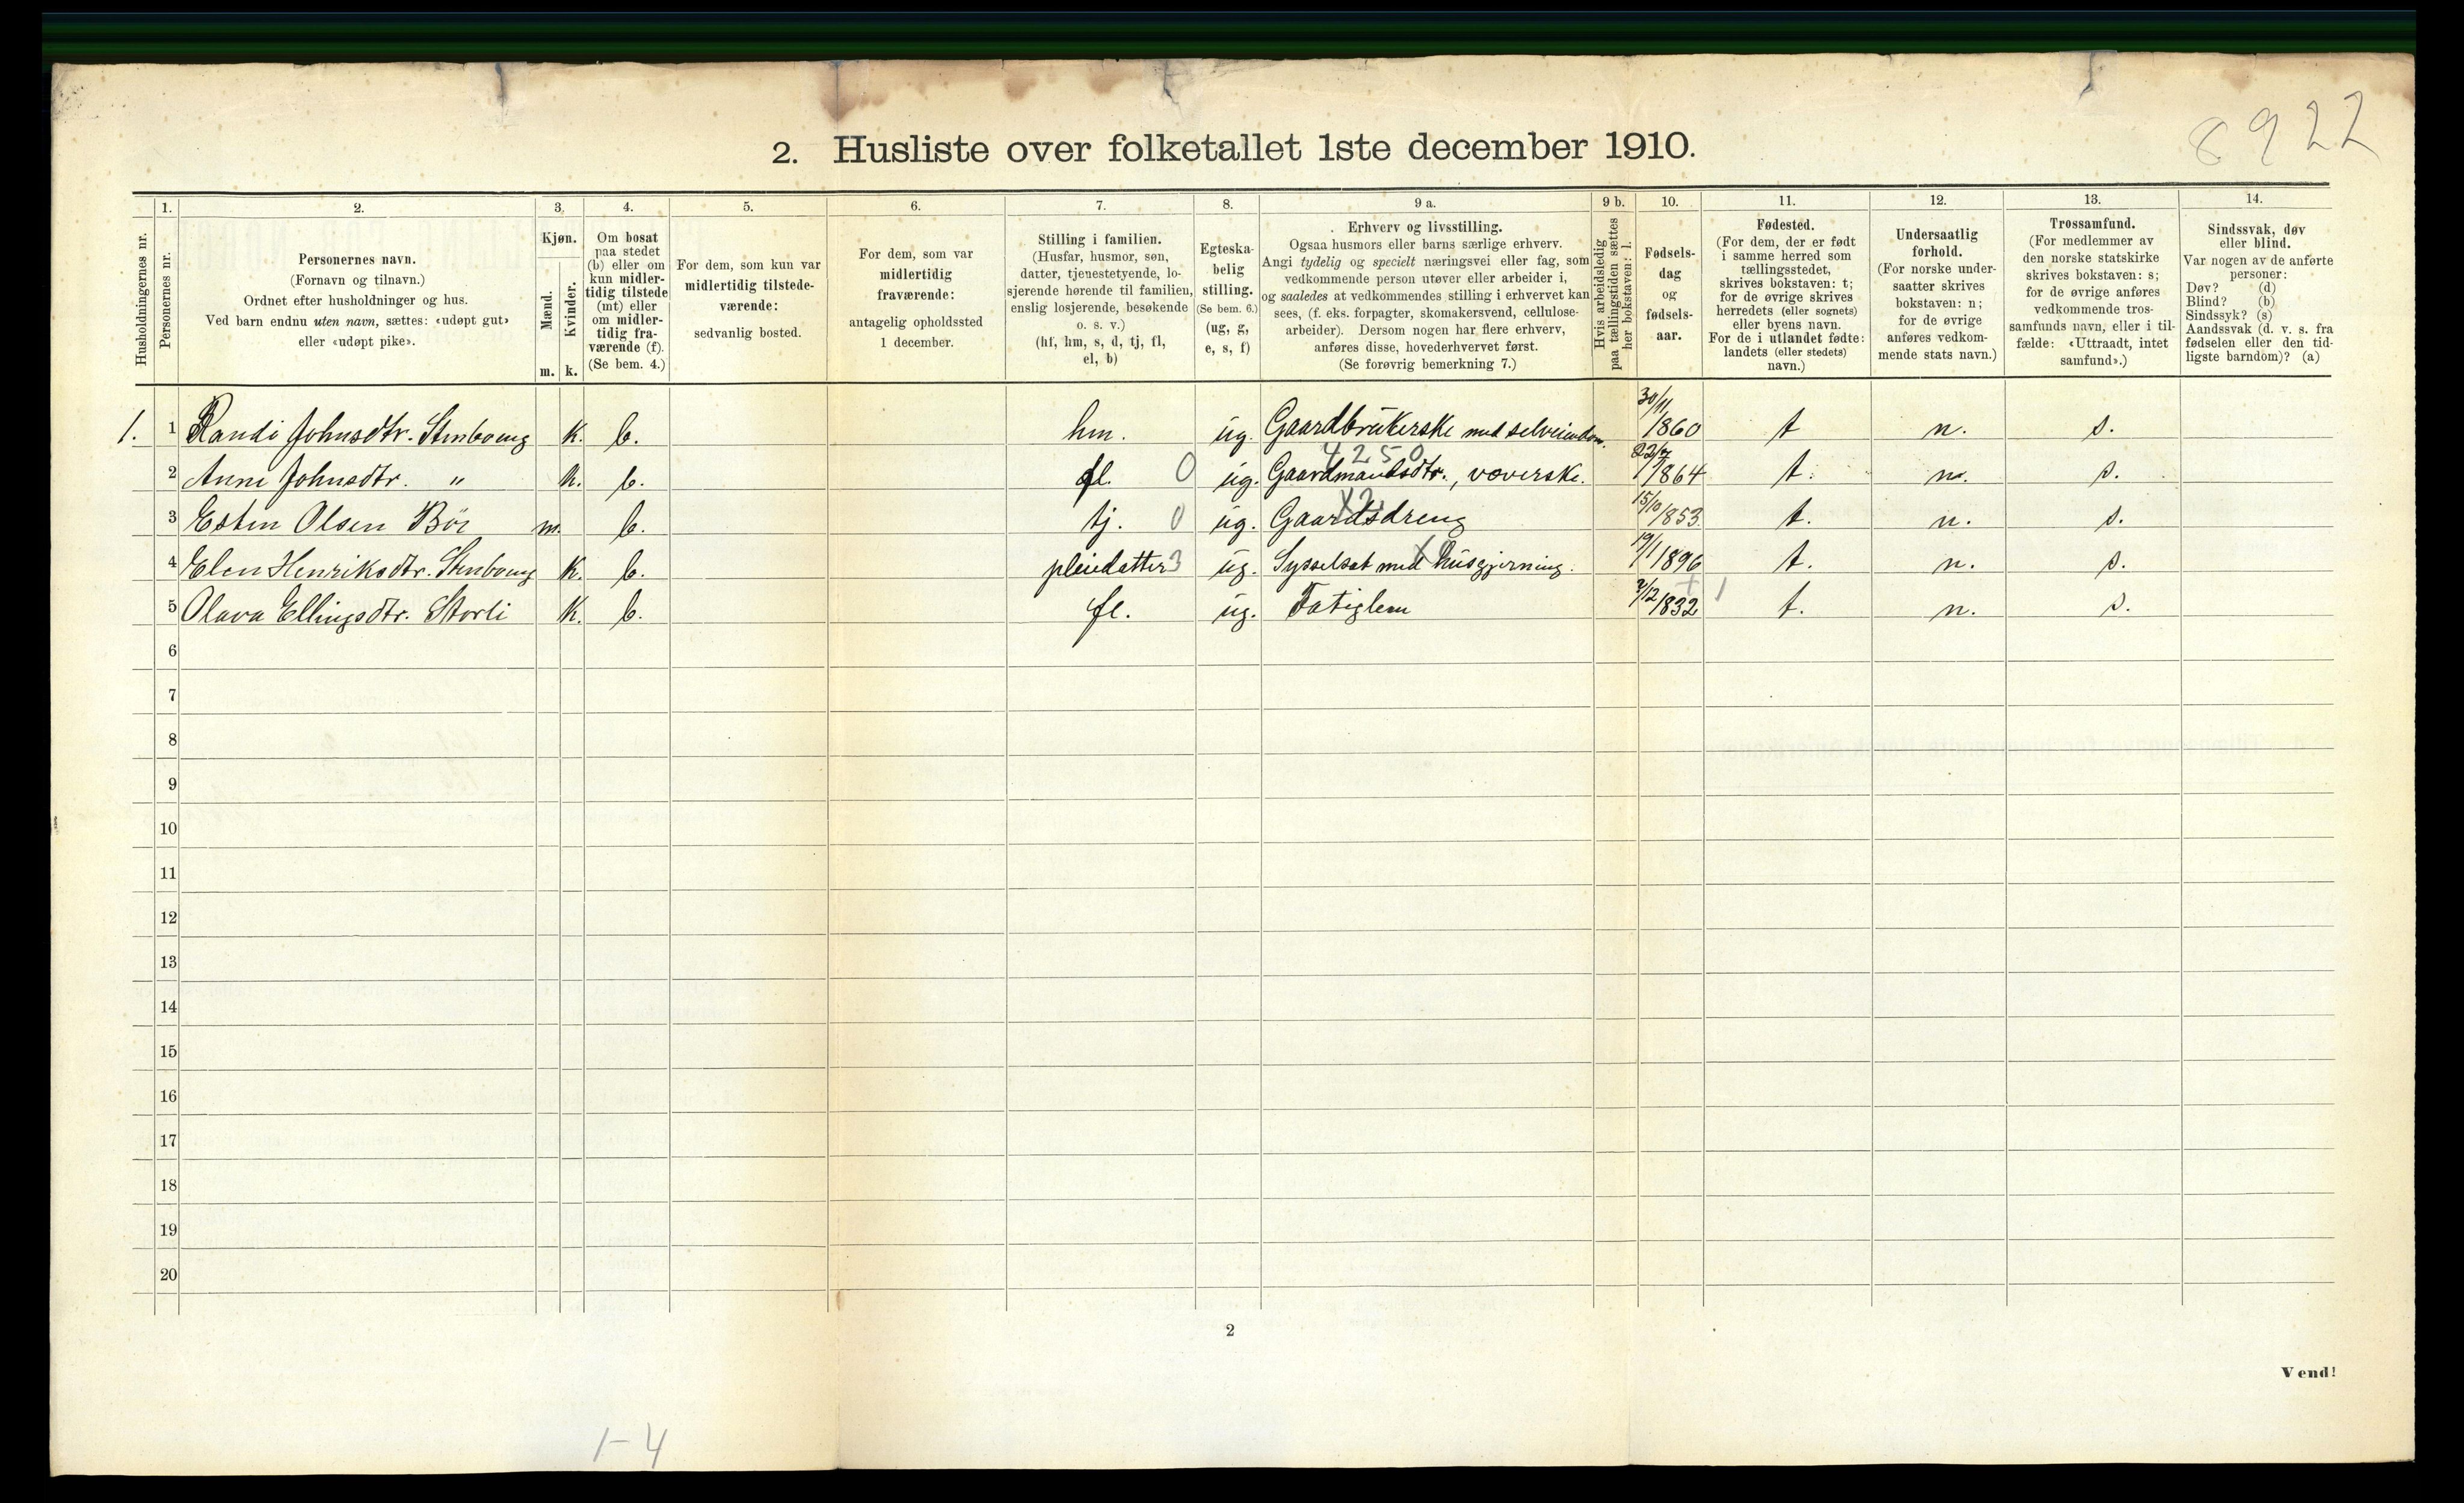 8922
2. Husliste over folketallet 1ste december 1910.
Husholdningernes nr.
1.
Personernes nr.
2.
Personernes navn.
(Fornavn og tilnavn.)
Ordnet efter husholdninger og hus.
Ved barn endnu uten navn, sættes: «udøpt gut»
eller «udøpt pike».
3.
Kjøn.
Mænd.
Kvinder.
m. k.
4.
Om bosat
paa stedet
(b) eller om
kun midler-
tidig tilstede
(mt) eller
om midler-
tidig fra-
værende (f).
(Se bem. 4.)
5.
For dem, som kun var
midlertidig tilstede-
værende:
sedvanlig bosted.
6.
For dem, som var
midlertidig
fraværende:
antagelig opholdssted
1 december.
7.
Stilling i familien.
(Husfar, husmor, søn,
datter, tjenestetyende, lo-
sjerende hørende til familien,
enslig losjerende, besøkende
o. s. v.)
(hf, hm, s, d, tj, fl,
el, b)
8.
Egteska-
belig
stilling.
(Se bem. 6.)
(ug, g,
e, s, f)
9 a.
Erhverv og livsstilling.
Ogsaa husmors eller barns særlige erhverv.
Angi tydelig og specielt næringsvei eller fag, som
vedkommende person utøver eller arbeider i,
og saaledes at vedkommendes stilling i erhvervet kan
sees, (f. eks. forpagter, skomakersvend, cellulose-
arbeider). Dersom nogen har flere erhverv,
anføres disse, hovederhvervet først.
(Se forøvrig bemerkning 7.)
9 b.
Hvis arbeidsledig
paa tællingstiden sættes
her bokstaven: l.
10.
Fødsels-
dag
og
fødsels-
aar.
11.
Fødested.
(For dem, der er født
i samme herred som
tællingsstedet,
skrives bokstaven: t;
for de øvrige skrives
herredets (eller sognets)
eller byens navn.
For de i utlandet fødte:
landets (eller stedets)
navn.)
12.
Undersaatlig
forhold.
(For norske under-
saatter skrives
bokstaven: n;
for de øvrige
anføres vedkom-
mende stats navn.)
13.
Trossamfund.
(For medlemmer av
den norske statskirke
skrives bokstaven: s;
for de øvrige anføres
vedkommende tros-
samfunds navn, eller i til-
fælde: «Uttraadt, intet
samfund».)
14.
Sindssvak, døv
eller blind.
Var nogen av de anførte
personer:
Døv? (d)
Blind? (b)
Sindssyk? (s)
Aandssvak (d. v. s. fra
fødselen eller den tid-
ligste barndom)? (a)
1. 1 Randi Johnsdtr. Stenboeng k. b. hm. ug. Gaardbrukerske med selveiendom. 30/11 1860 t n. s.
4250
2 Anne Johnsdtr. " k. b. fl. 0 ug. Gaardmandsdtr., væverske. 1864 t. n. s.
X2
3 Esten Olsen Bör m. b. tj. 0 ug. Gaardsdreng 15/10 1853 t. n. s.
4 Elen Henriksdtr. Stenboeng k. b. pleiedatter 3 ug. Sysselsat med husgjerning. 19/1 1896 t. n. s.
5 Olava Ellingsdtr. Storli k. b. fl. ug. Fatiglem 2/12 1832 t. n. s.
6
7
8
9
10
11
12
13
14
15
16
17
18
19
20
2
Vend!
1-4